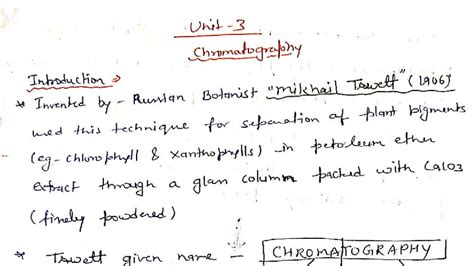 Unit-3
Chromatography
Introduction ⇒
* Invented by - Russian Botanist "Mikhail Tswett" (1906)
used this technique for separation of plant pigments
(eg- chlorophyll & xanthophylls) in petroleum ether
extract through a glass column packed with CaCO3
(finely powdered)
* Tswett given name - CHROMATOGRAPHY